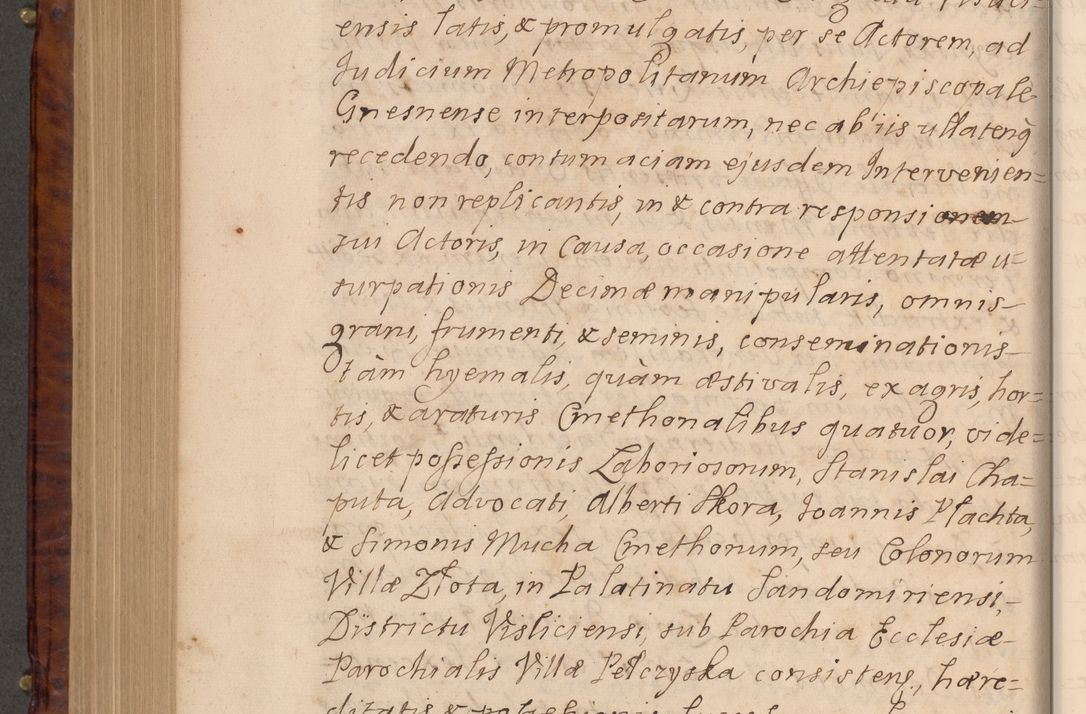 ensis latis, & promulgatis, per se Actorem, ad
Judicium Metropolitanum Archiepiscopale
Gnesnense interpositarum, nec ab iis ullatenq
recedendo, contumaciam ejusdem Intervenien=
tis non replicantis, in & contra responsionem
sui Actoris, in Causa, occasione attentatæ u=
surpationis Decimæ manipularis, omnis
grani, frumenti, & seminis, conseminationis
tàm hyemalis, quàm æstivalis, ex agris, hor=
tis, & araturis Cmethonalibus quatuor, vide=
licet possessionis Laboriosorum, Stanislai Cha=
puta, Advocati, Alberti Skora, Joannis Płachta,
& Simonis Mucha Cmethonum, seu Colonorum
Villæ Złota, in Palatinatu Sandomiriensi,
Districtu Visliciensi, sub Parochia Ecclesiæ
Parochialis Villæ Pełczyska consisten., hære=